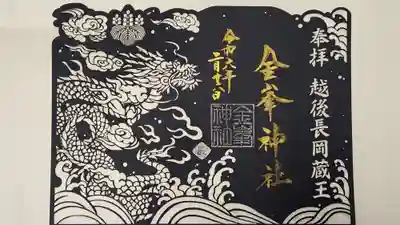 奉拝 越後長岡蔵王
金峯神社
令和六年
二月十一日
金峯
神社